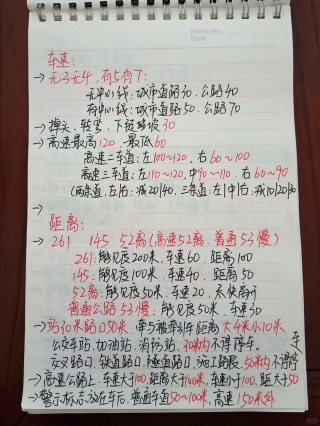 Memo No.
Date
车速:
→ 无3无4，有5有7:
无中心线: 城市道路30、公路40
有中心线: 城市道路50、公路70
→ 掉头、转弯、下陡坡30
→ 高速最高120、最低60
高速二车道: 左100~120，右60~100
高速三车道: 左110~120，中90~110、右60~90
(两条道: 左|右: 减20|40、三条道: 左|中|右: 减10|20|30
→
距离:
→ 261 145 52离(高速52离、普通53慢)
261: 能见度200米、车速60、距离100
145: 能见度100米、车速40、距离50
52离: 能见度50米、车速20、尽快离开
普通公路53慢: 能见度50米、车速30
→ 站30米路口50米、牵与被牵引车距离大4米小10米
公交车站、加油站、消防站、30米内不得停车、
交叉路口、铁道路口、隧道路口、施工路段、50米内不得停车
→ 高速公路上、车速大于100、距离大于100米、车速小于100、距大于50
→ 警示标志、放在车后、普通车道50~100米、高速150米外